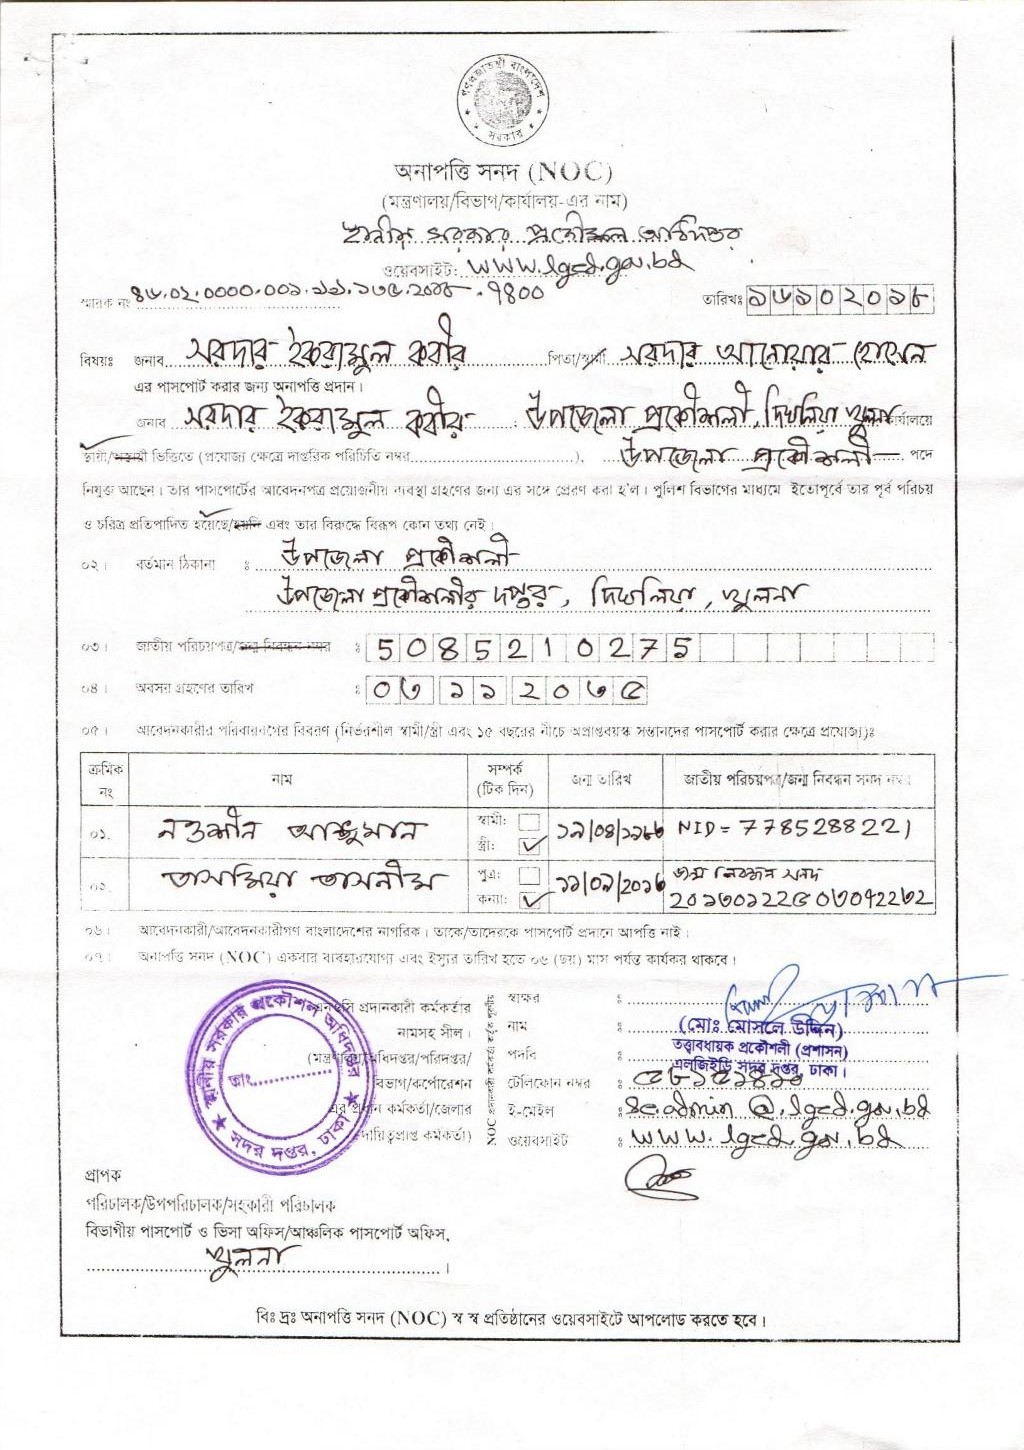 গণপ্রজাতন্ত্রী বাংলাদেশ
সরকার
অনাপত্তি সনদ (NOC)
(মন্ত্রণালয়/বিভাগ/কার্যালয়-এর নাম)
স্থানীয় সরকার প্রকৌশল অধিদপ্তর
ওয়েবসাইট: www.lged.gov.bd
স্মারক নং ৪৬.০২.০০০০.০০১.১১.১৩৫.২০১৮.-৭৪০০
তারিখঃ ১৬১০২০১৮
বিষয়ঃ জনাব সরদার ইকরামুল কবীর পিতা/স্বামী সরদার আনোয়ার হোসেন
এর পাসপোর্ট করার জন্য অনাপত্তি প্রদান।
জনাব সরদার ইকরামুল কবীর উপজেলা প্রকৌশলী, দিঘলিয়া খুলনা কার্যালয়ে
স্থায়ী/অস্থায়ী ভিত্তিতে (প্রযোজ্য ক্ষেত্রে দাপ্তরিক পরিচিতি নম্বর..............................), উপজেলা প্রকৌশলী পদে
নিযুক্ত আছেন। তার পাসপোর্টের আবেদনপত্র প্রয়োজনীয় ব্যবস্থা গ্রহণের জন্য এর সঙ্গে প্রেরণ করা হ'ল। পুলিশ বিভাগের মাধ্যমে ইতোপূর্বে তার পূর্ব পরিচয়
ও চরিত্র প্রতিপাদিত হয়েছে/হয়নি এবং তার বিরুদ্ধে বিরূপ কোন তথ্য নেই।
০২। বর্তমান ঠিকানা : উপজেলা প্রকৌশলী
উপজেলা প্রকৌশলীর দপ্তর, দিঘলিয়া, খুলনা
০৩। জাতীয় পরিচয়পত্র/জন্ম নিবন্ধন নম্বর : 5085210275
০৪। অবসর গ্রহণের তারিখ : ০৩১১২০৩৫
০৫। আবেদনকারীর পরিবারবর্গের বিবরণ (নির্ভরশীল স্বামী/স্ত্রী এবং ১৫ বছরের নীচে অপ্রাপ্তবয়স্ক সন্তানদের পাসপোর্ট করার ক্ষেত্রে প্রযোজ্য)ঃ
ক্রমিক নং নাম সম্পর্ক (টিক দিন) জন্ম তারিখ জাতীয় পরিচয়পত্র/জন্ম নিবন্ধন সনদ নম্বর
০১. নওশীন আঞ্জুমান স্বামী: স্ত্রী: ✓ NID = 7785288221
০২. তাসমিয়া তাসনীম পুত্র: কন্যা: ✓ ১১/০৯/২০১৩ জন্ম নিবন্ধন সনদ
২০১৩০১২২৫০৩০৭২৬২
০৬। আবেদনকারী/আবেদনকারীগণ বাংলাদেশের নাগরিক। তাকে/তাদেরকে পাসপোর্ট প্রদানে আপত্তি নাই।
০৭। অনাপত্তি সনদ (NOC) একবার ব্যবহারযোগ্য এবং ইস্যুর তারিখ হতে ০৬ (ছয়) মাস পর্যন্ত কার্যকর থাকবে।
এনওসি প্রদানকারী কর্মকর্তার
নামসহ সীল।
(মন্ত্রণালয়/অধিদপ্তর/পরিদপ্তর/
বিভাগ/কর্পোরেশন
এর প্রধান কর্মকর্তা/জেলার
দায়িত্বপ্রাপ্ত কর্মকর্তা)
NOC প্রদানকারী কর্মকর্তা কর্তৃক পূরণীয়
স্বাক্ষর :
নাম : (মোঃ মোসলে উদ্দিন)
পদবি : তত্ত্বাবধায়ক প্রকৌশলী (প্রশাসন)
এলজিইডি সদর দপ্তর, ঢাকা।
টেলিফোন নম্বর :
ই-মেইল : se.admin@lged.gov.bd
ওয়েবসাইট : www.lged.gov.bd
স্থানীয় সরকার প্রকৌশল অধিদপ্তর
তাং..............
সদর দপ্তর, ঢাকা
প্রাপক
পরিচালক/উপপরিচালক/সহকারী পরিচালক
বিভাগীয় পাসপোর্ট ও ভিসা অফিস/আঞ্চলিক পাসপোর্ট অফিস,
খুলনা।
বিঃ দ্রঃ অনাপত্তি সনদ (NOC) স্ব স্ব প্রতিষ্ঠানের ওয়েবসাইটে আপলোড করতে হবে।